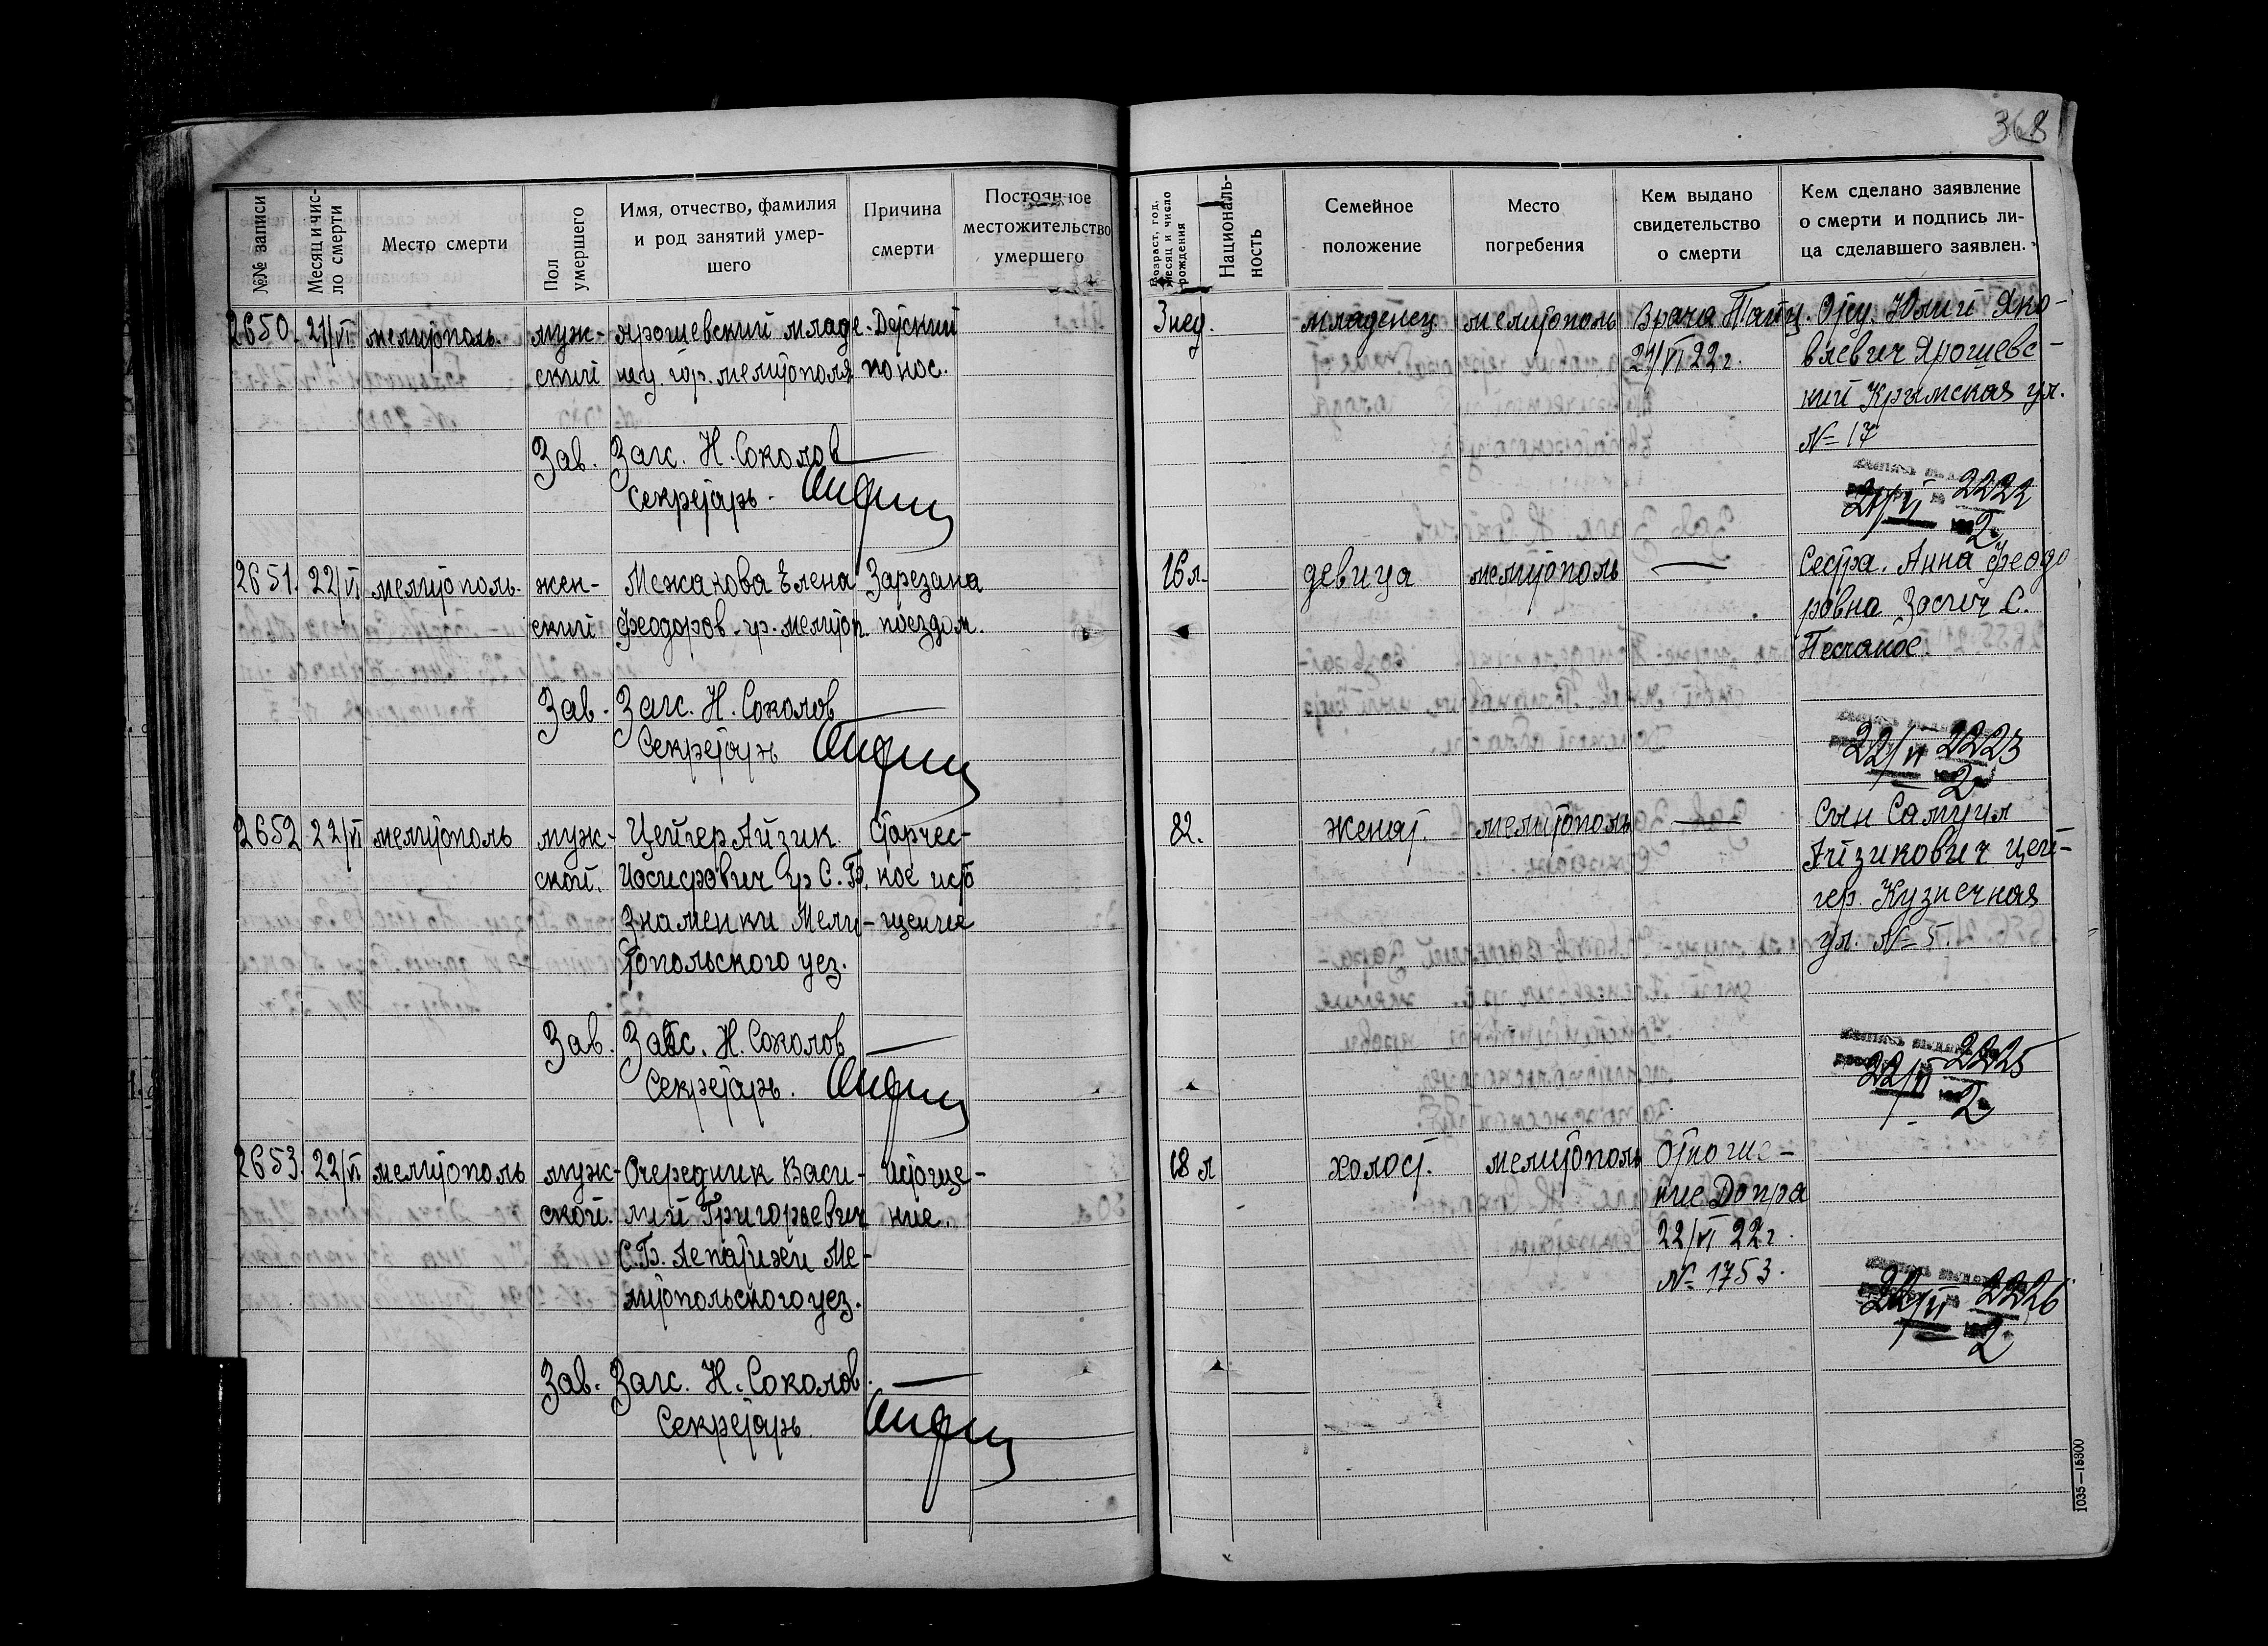 368
№№ записи
Месяц и чис-
ло смерти
Место смерти
Пол
умершего
Имя, отчество, фамилия
и род занятий умер-
шего
Причина
смерти
Постоянное
местожительство
умершего
Возраст, год,
месяц и число
рождения
Националь-
ность
Семейное
положение
Место
погребения
Кем выдано
свидетельство
о смерти
Кем сделано заявление
о смерти и подпись ли-
ца сделавшего заявлен.
2650. 21/VI мелитополь. муж- Ярошевский младе- Детский
ский нец. гор. мелитополя понос.
3 нед. младенец мелитополь Врача
21/VI 22 г.
Отец. Юлий Яко-
влевич Ярошевс-
кий Крымская ул.
№ 17
Зав. Загс. Н. Соколов
Секретарь.
21/VI 2222
2
2651. 22/VI мелитополь. жен- Межакова Елена Зарезана
ский Феодоров. гр. мелитоп. поездом.
16 л. девица мелитополь —
Сестра. Анна Феодо
ровна С.
Песчаное.
Зав. Загс. Н. Соколов
Секретарь
22/VI 2223
2
2652 22/VI мелитополь муж- Цейгер Айзик Старчес-
ской. Иосифович гр С. Б. кое исто
Знаменки Мели- щение
топольского уез.
82. женат. мелитополь —
Сын Самуил
Айзикович Цей-
гер. Кузнечная
ул. № 5.
Зав. Загс. Н. Соколов
Секретарь.
22/VI 2225
2
2653. 22/VI мелитополь муж- Очередник Васи- Истоще-
ской. лий Григорьевич ние.
С. Б. Лепатихи Ме-
литопольского уез.
18 л холост. мелитополь Отноше-
ние Допра
22/VI 22 г.
№ 1753.
Зав. Загс. Н. Соколов.
Секретарь
22/VI 2226
2
1035—15300